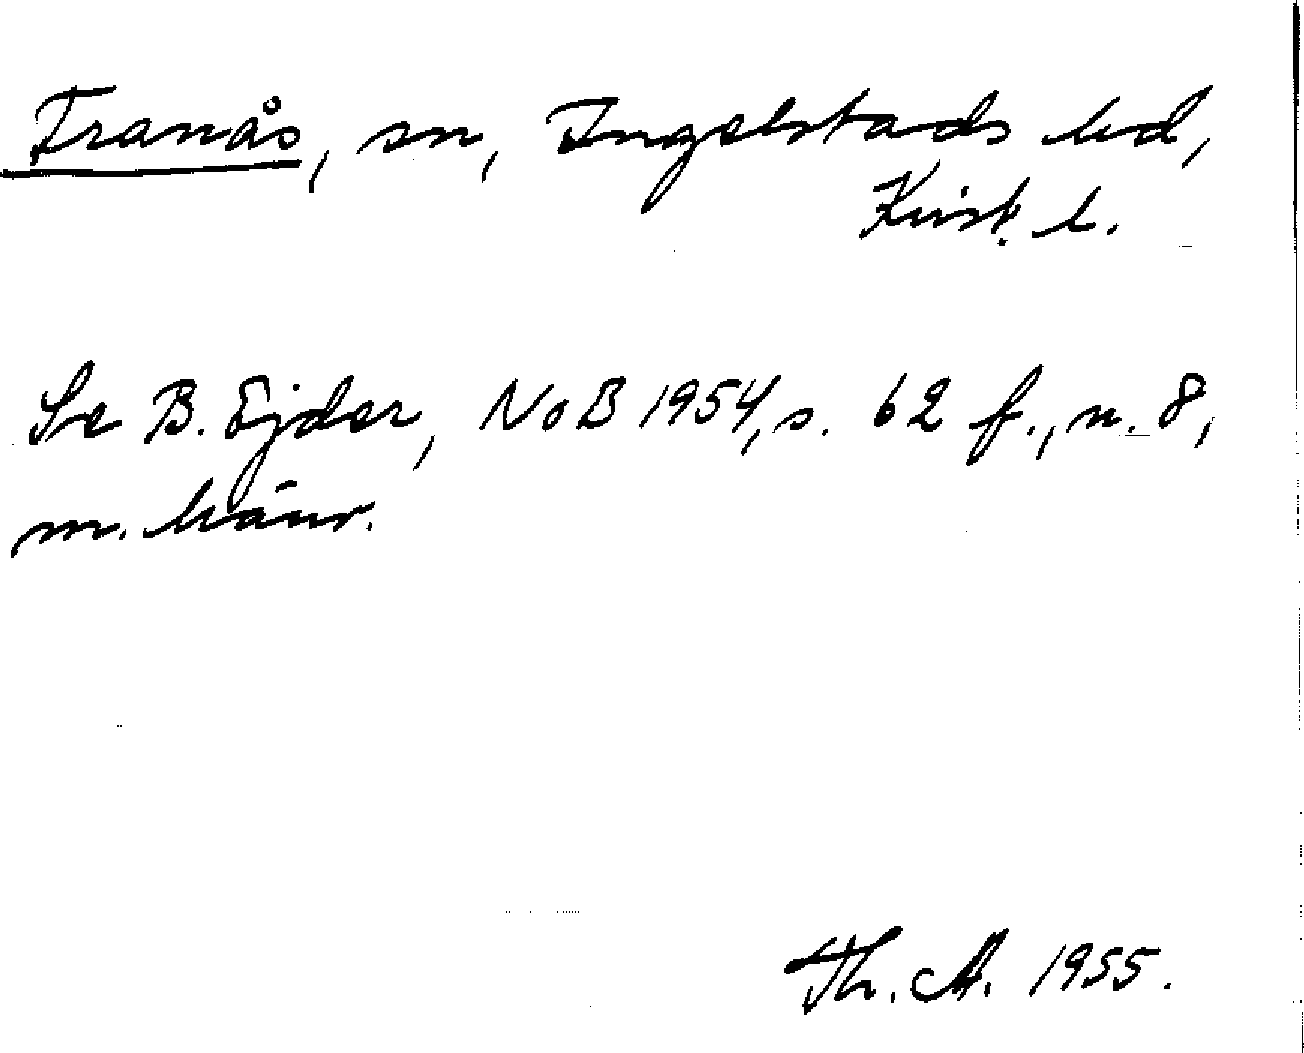 Tranås, sn, Ingelstads hd,
Krist. l.
Se B. Ejder, NoB 1954, s. 62 f., n. 8,
m. hänv.
Th. A. 1955.